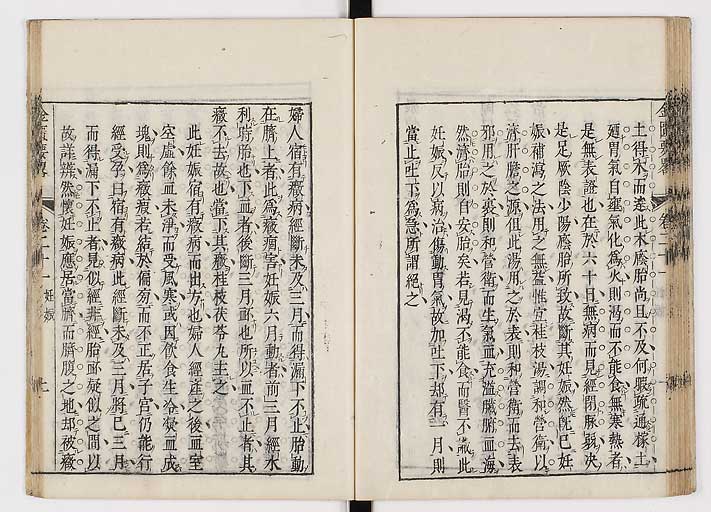 土得木而達此木應胎尚且不及何暇疏通樣土
廼胃氣自壅氣化爲火則渴而不能食無寒熱者
是無表證也在於六十日無病而見經閉脉弱決
是足厥陰少陽應胎所致故斷其妊娠然旣已妊
娠補瀉之法用之無益惟宜桂枝湯調和營衛以
滌肝膽之源但此湯用之於表則和營衛而去表
邪用之於裏則和營衛而生氣血充溢臟腑血海
然滌胎則自安胎矣若見渴不能食而醫不識此
妊娠反以病治傷動胃氣故加吐下却有一月則
當止吐下爲急所謂絕之
金匱要畧 卷二十一
婦人宿有癥病經斷未及三月而得漏下不止胎動
在臍上者此爲癥痼害妊娠六月動者前三月經水
利時胎也下血者後斷三月衃也所以血不止者其
癥不去故也當下其癥桂枝茯苓丸主之
此妊娠宿有癥病而出方也婦人經產之後血室
空虛餘血未淨而受風寒或因飲食生冷凝血成
塊則爲癥瘕若結於偏旁而不正居子宮仍能行
經受孕曰宿有癥病此經斷未及三月將已三月
而得漏下不止者見似經非經胎衃疑似之間以
故詳辨然懷妊娠應居當臍而臍腹之地却被癥
金匱要畧 卷二十一 妊娠 七